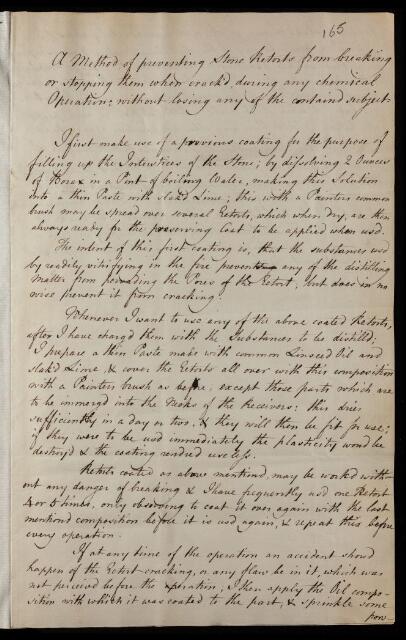 165
A Method of preventing Stone Retorts from breaking
or stopping them when crack'd, during any chemical
Operation; without losing any of the containd subject.
I first make use of a previous coating for the purpose of
filling up the Interstices of the Stone; by dissolving 2 Ounces
of Borax in a Pint of boiling Water, making this Solution
into a thin Paste with Slakd Lime; this with a Painters common
brush may be spread over several Retorts, which when dry, are then
always ready for the preserving Coat to be applied when used.
The intent of this first coating is, that the substances used
by readily vitrifying in the fire prevents any of the distilling
matter from pervading the Pores of the Retort, but does in no
wise prevent it from cracking.
Whenever I want to use any of the above coated Retorts,
after I have charg'd them with the Substances to be distill'd;
I prepare a thin Paste made with common Linseed Oil and
slak'd Lime, & cover the Retorts all over with this composition
with a Painters brush as before, except those parts which are
to be immerg'd into the Necks of the Receivers: this dries
sufficiently in a day or two, & they will then be fit for use;
if they were to be used immediately the plasticity woud be
destroy'd & the coating renderd useless.
Retorts coated as above mentiond, may be worked with-
out any danger of breaking & I have frequently used one Retort
4 or 5 times, only observing to coat it over again with the last
mentiond composition before it is used again, & repeat this before
every operation.
If at any time of the operation an accident shoud
happen of the Retort cracking, or any flaw be in it, which was
not perceivd before the operation; I then apply the Oil compo-
sition with which it was coated to the part, & sprinkle some
pow-